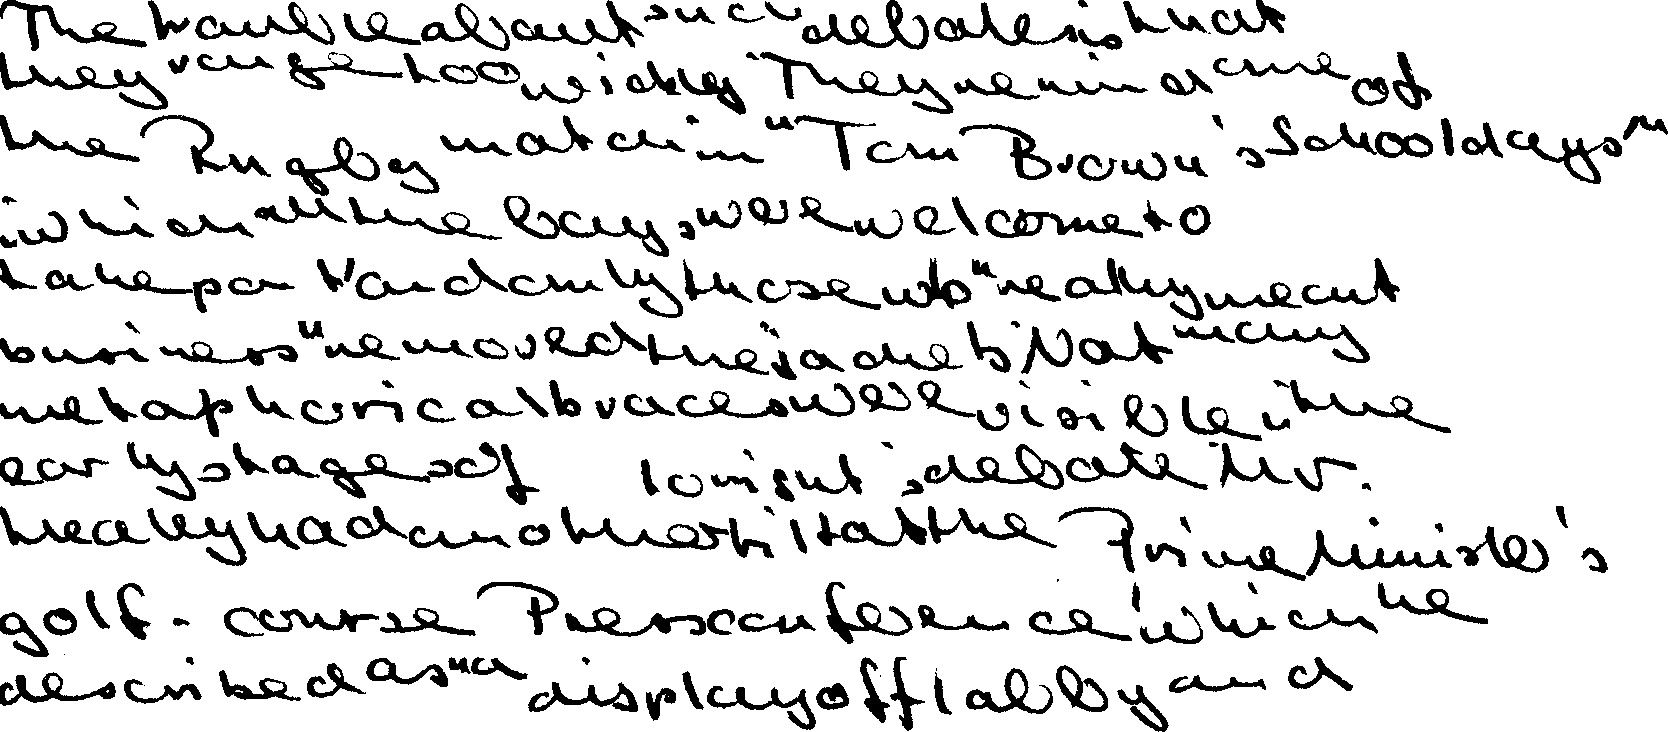 The trouble about such debates is that
they range too widely. They remind me of
the Rugby match in "Tom Brown's Schooldays"
in which all the boys were welcome to
take part and only those who "really meant
business" removed their jackets. Not many
metaphorical braces were visible in the
early stages of tonight's debate. Mr.
Healey had another tilt at the Prime Minister's
golf-course Press conference which he
described as "a display of flabby and